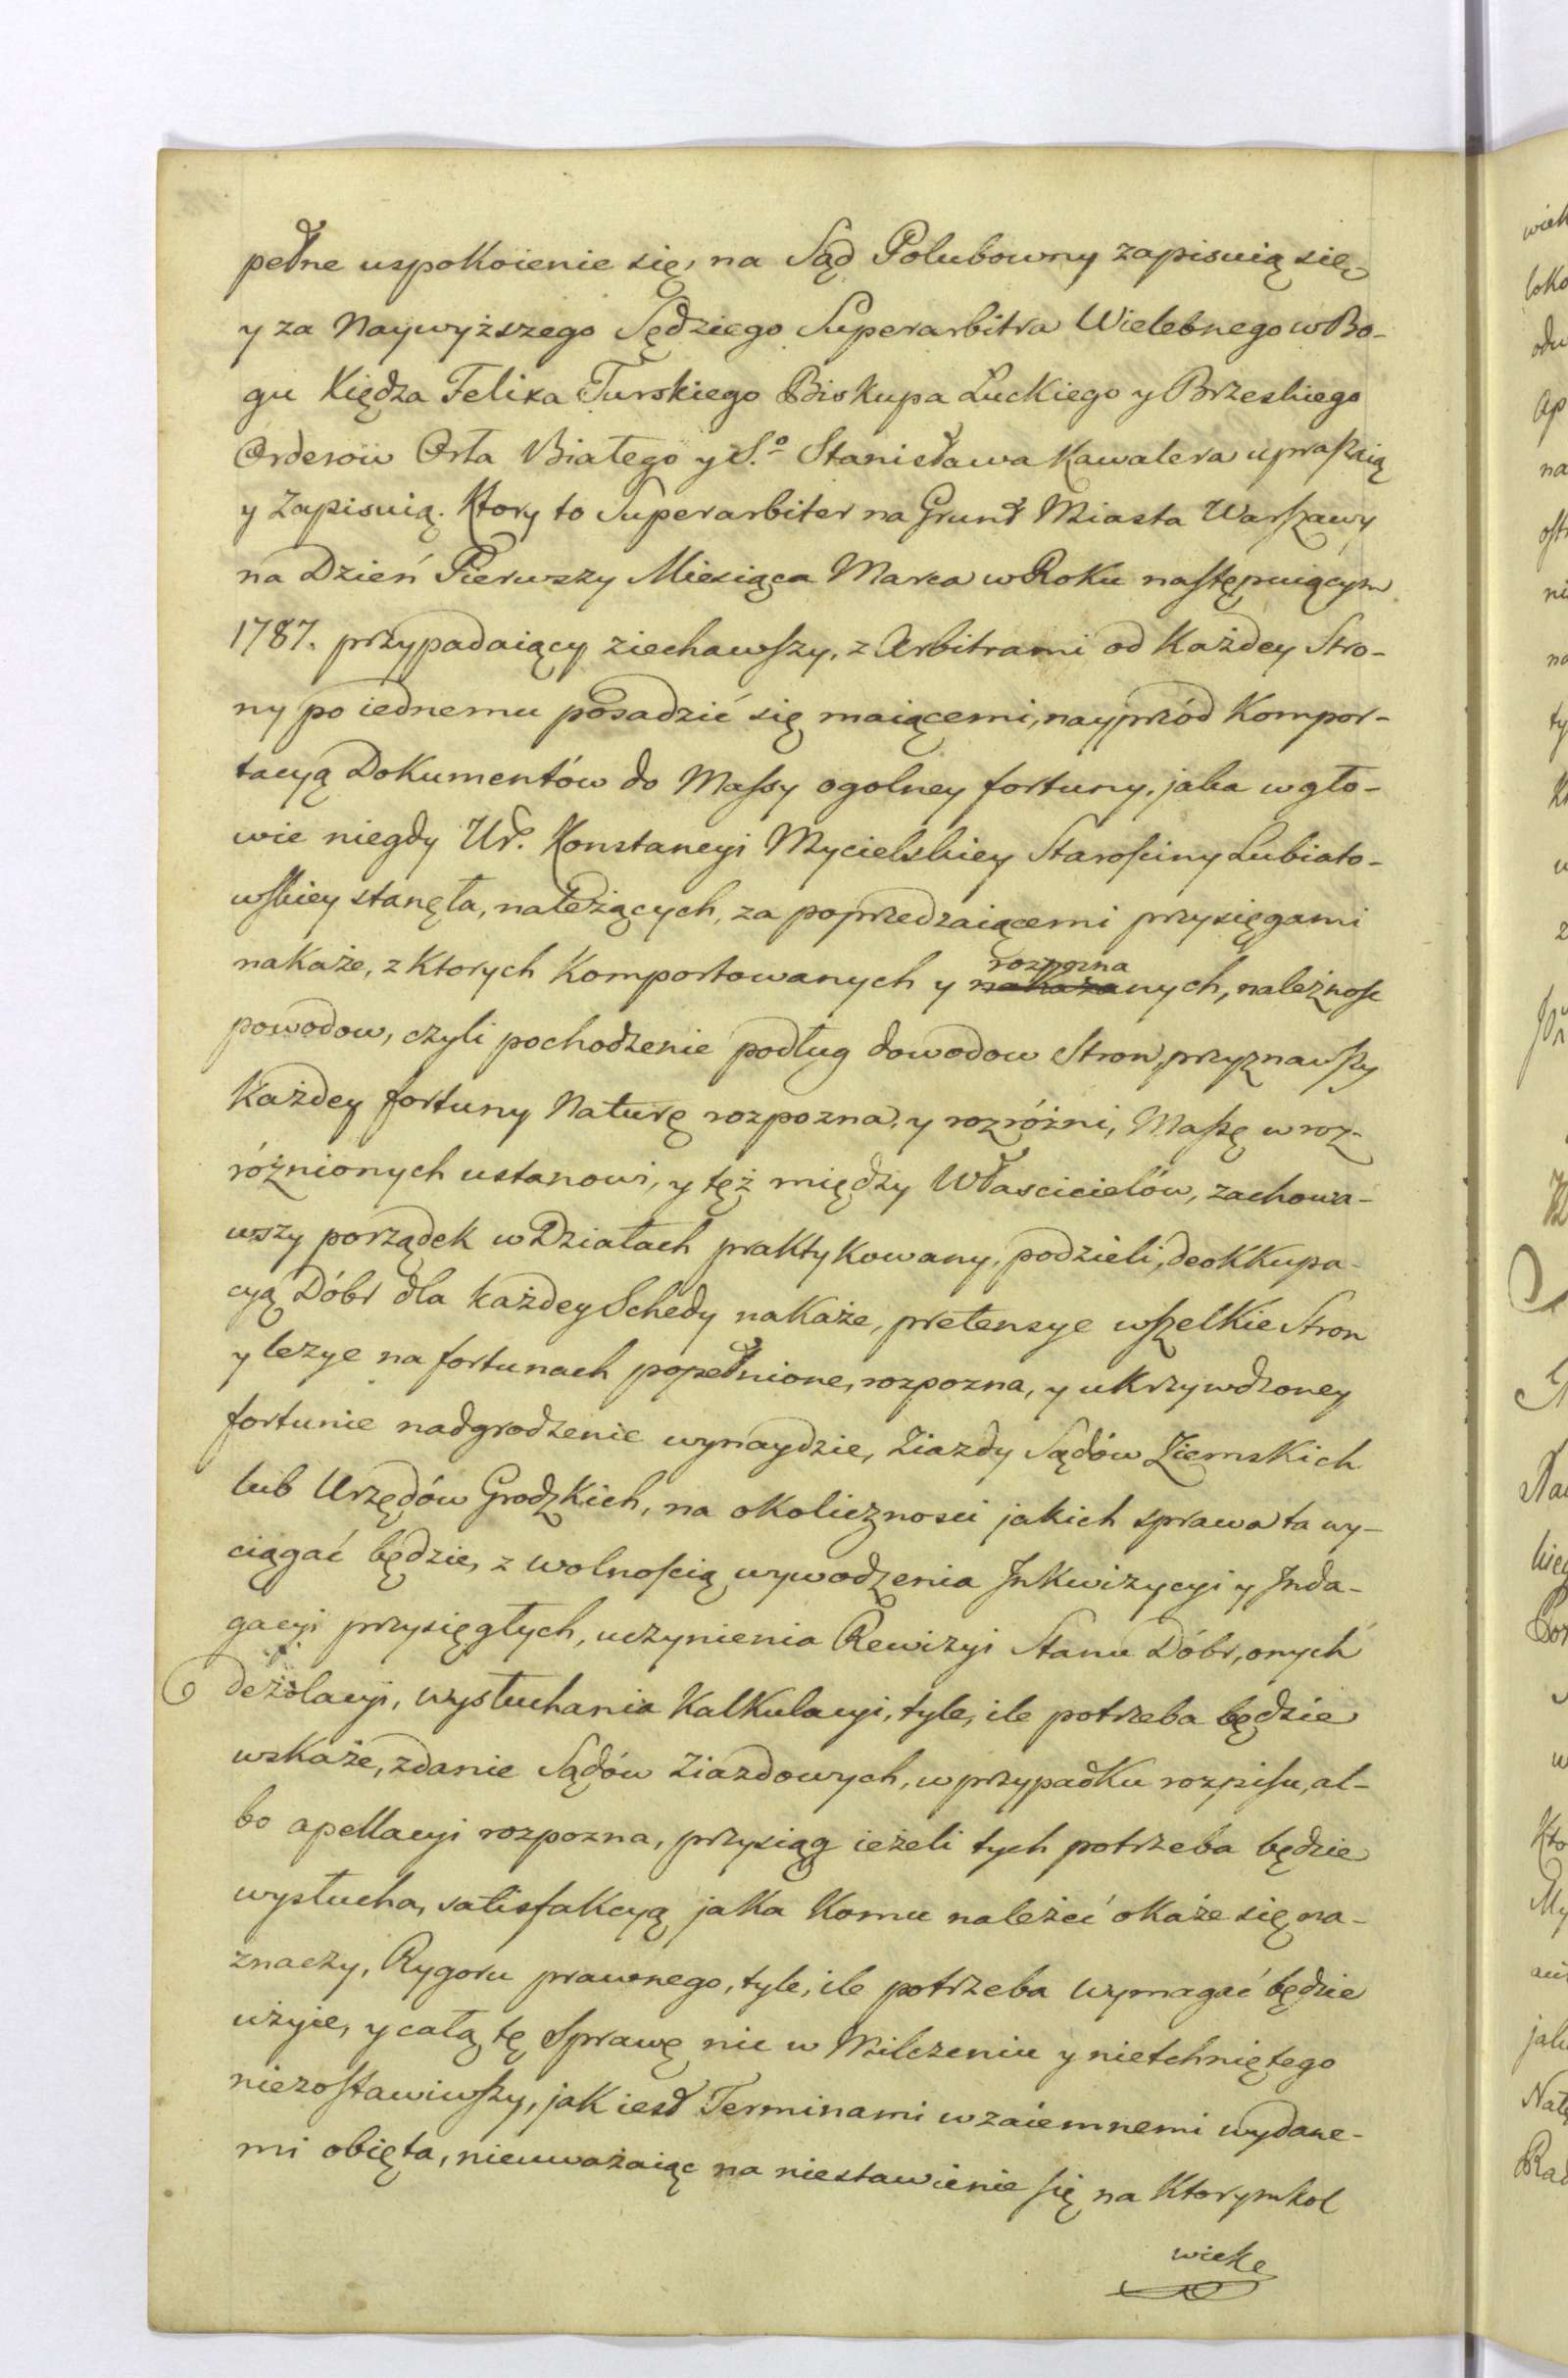 pełne uspokoienie się, na Sąd Polubowny zapisuią się
y za Naywyższego Sędziego Superarbitra Wielebnego w Bo-
gu Xiędza Felixa Turskiego Biskupa Łuckiego y Brzeskiego
Orderow Orła Białego y S.º Stanisława Kawalera upraszaią
y Zapisuią. Ktory to Superarbiter na Grunt Miasta Warszawy
na Dzień Pierwszy Miesiąca Marca w Roku następuiącym
1787. przypadaiący ziechawszy, z Arbitrami od Każdey Stro-
ny po iednemu posadzić się maiącemi, nayprzód Kompor-
tacyą Dokumentów do Massy ogolney fortuny, jaka w gło-
wie niegdy Ur. Konstancyi Mycielskiey Starosciny Lubiato-
wskiey stanęła, należących, za poprzedzaiącemi przysięgami
nakaże, z Ktorych Komportowanych y rozpoznanych, należnosc
powodow, czyli pochodzenie podług dowodow Stron, przyznawszy
Każdey fortuny Naturę rozpozna, y rozróżni, Massę w roz-
różnionych ustanowi, y też między Włascicielów, zachowa-
wszy porządek w Działach praktykowany, podzieli, deokkupa-
cyą Dóbr dla każdey Schedy nakaże, pretensye wszelkie Stron
y lezye na fortunach popełnione, rozpozna, y ukrzywdzoney
fortunie nadgrodzenie wynaydzie, Ziazdy Sądów Ziemskich
lub Urzędów Grodzkich, na okolicznosci jakich sprawa ta wy-
ciągać będzie, z wolnością wywodzenia Inkwizycyi y Inda-
gacyi przysięgłych, uczynienia Rewizyi Stanu Dóbr, onych
dezolacyi, wysłuchania Kalkulacyi, tyle, ile potrzeba będzie
wskaże, zdanie Sądów Ziazdowych, w przypadku rozpisu, al-
bo apellacyi rozpozna, przysiąg ieżeli tych potrzeba będzie
wysłucha, satisfakcyą jaka Komu należeć okaże się na-
znaczy, Rygoru prawnego, tyle, ile potrzeba wymagać będzie
użyie, y całą tę Sprawę nic w Milczeniu y nietchniętego
niezostawiwszy, jak iest Terminami wzaiemnemi wydane-
mi obięta, nieuważaiąc na niestawienie się na Ktorymkol
wiek